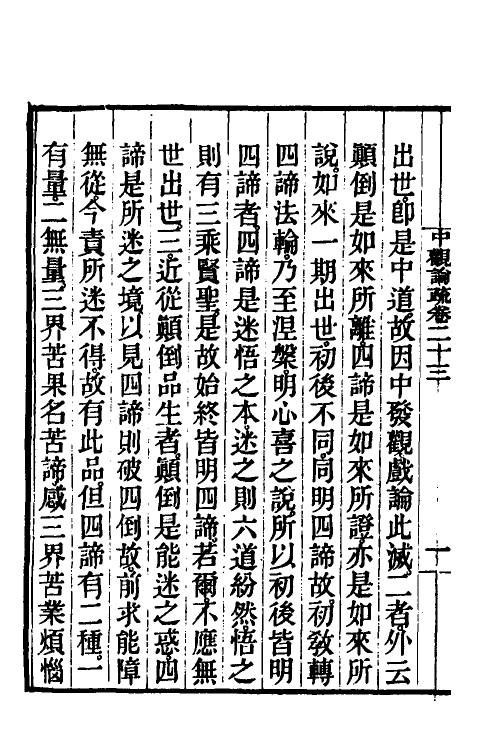 中觀論疏卷二十三 一
出世。卽是中道。故因中發觀。戲論此滅。二者。外云
顚倒是如來所離。四諦是如來所證。亦是如來所
說。如來一期出世。初後不同。同明四諦故。初敎轉
四諦法輪。乃至涅槃。明心喜之說。所以初後皆明
四諦者。四諦是迷悟之本。迷之則六道紛然。悟之
則有三乘賢聖。是故始終皆明四諦。若爾。不應無
世出世。三。近從顚倒品生者。顚倒是能迷之惑。四
諦是所迷之境。以見四諦則破四倒故。前求能障
無從。今責所迷不得。故有此品。但四諦有二種。一
有量。二無量。三界苦果名苦諦。感三界苦業煩惱